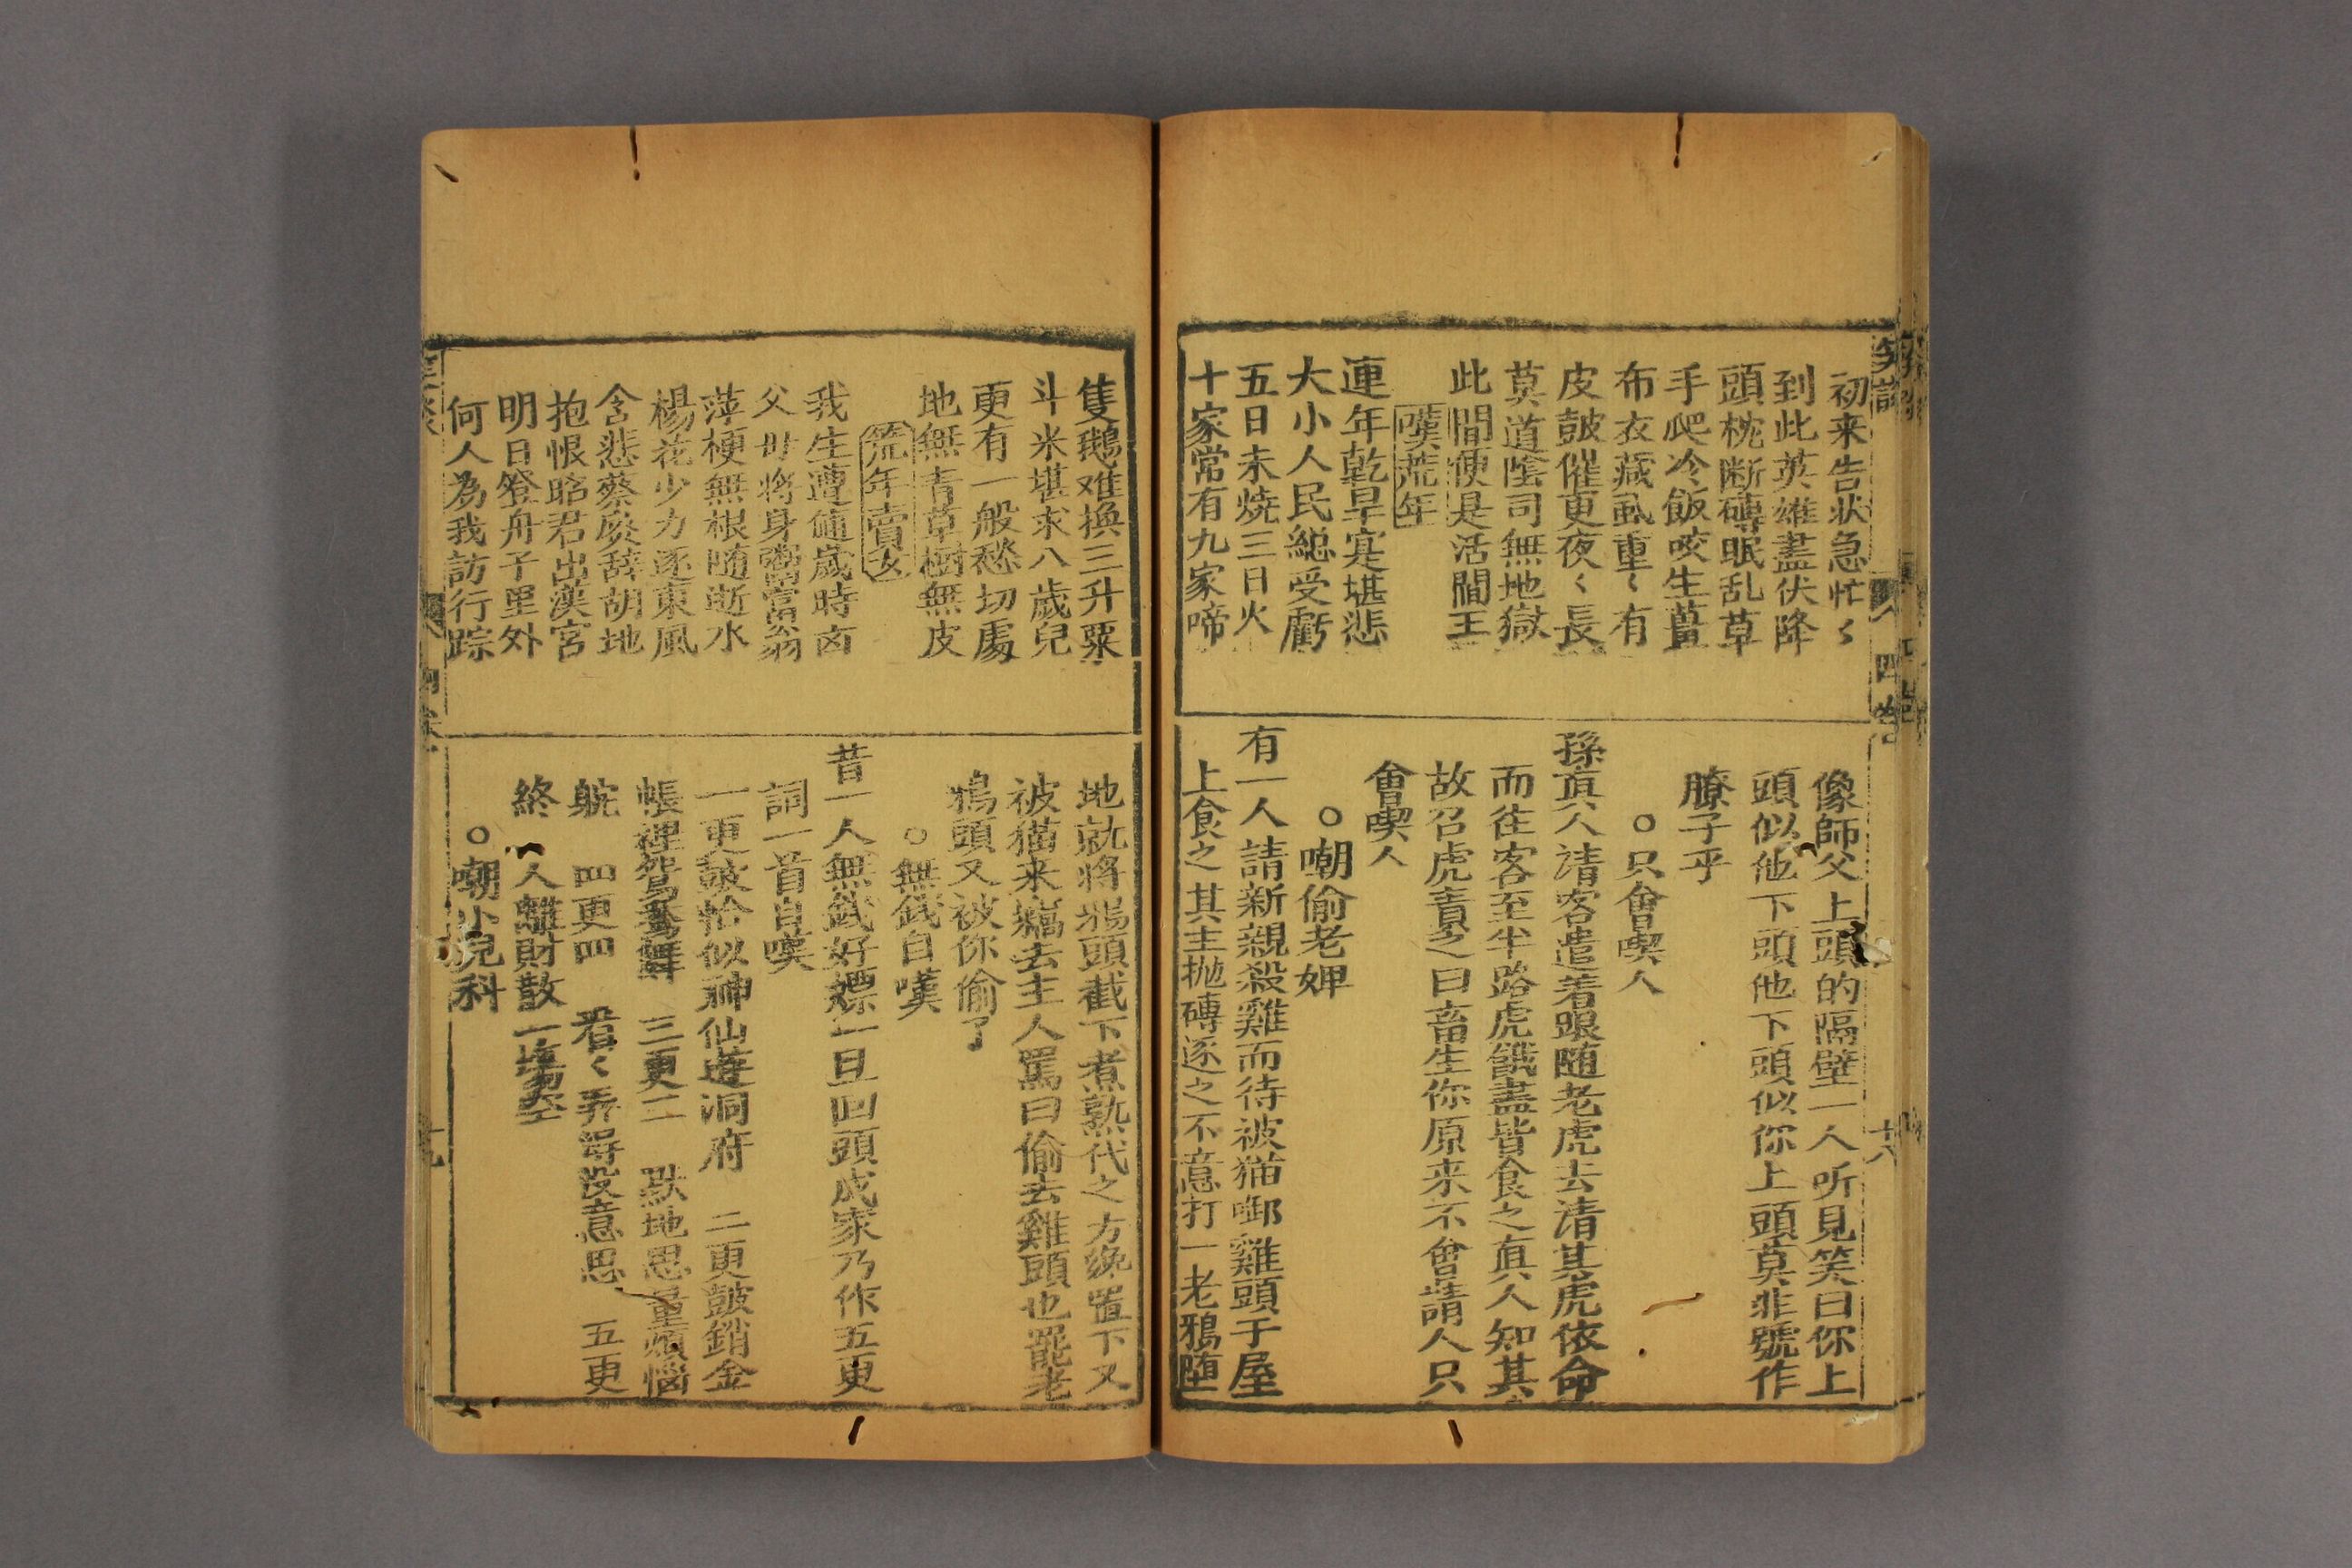 初来告状急忙〻
到此英雄盡伏降
頭枕断磚眠乱草
手爬冷飯咬生薑
布衣藏虱重〻有
皮皷催更夜〻長
莫道陰司無地獄
此間便是活閻王
嘆荒年
連年乾旱寔堪悲
大小人民緫受虧
五日未燒三日火
十家常有九家啼
像師父上頭的隔壁一人听見笑曰你上
頭似他下頭他下頭似你上頭莫非號作
膫子乎
○只會喫人
孫真人請客遣着跟随老虎去請其虎依命
而往客至半路虎餓盡皆食之真人知其
故召虎責之曰畜生你原来不會請人只
會喫人
○嘲偷老婢
有一人請新親殺雞而待被猫啣雞頭于屋
上食之其主拋磚逐之不意打一老鴉墮
四卷
十八
隻鵝难換三升粟
斗米堪求八歲兒
更有一般愁切處
地無青草樹無皮
荒年賣女
我生遭値歲時卤
父母將身鬻富翁
萍梗無根随逝水
楊花少力逐東風
含悲蔡琰辞胡地
抱恨昭君出漢宮
明日登舟千里外
何人為我訪行踪
地就将鴉頭截下煮熟代之方纔置下又
被猫来竊去主人罵曰偷去雞頭也罷老
鴉頭又被你偷了
○無銭自嘆
昔一人無銭好嫖一旦回頭成家乃作五更
詞一首自嘆
一更皷恰似神仙遊洞府 二更皷銷金
帳裡鴛鴦舞 三更二 默地思量煩惱
躭 四更四 看〻弄得没意思 五更
終 人離財散一塲空
○嘲小兒科